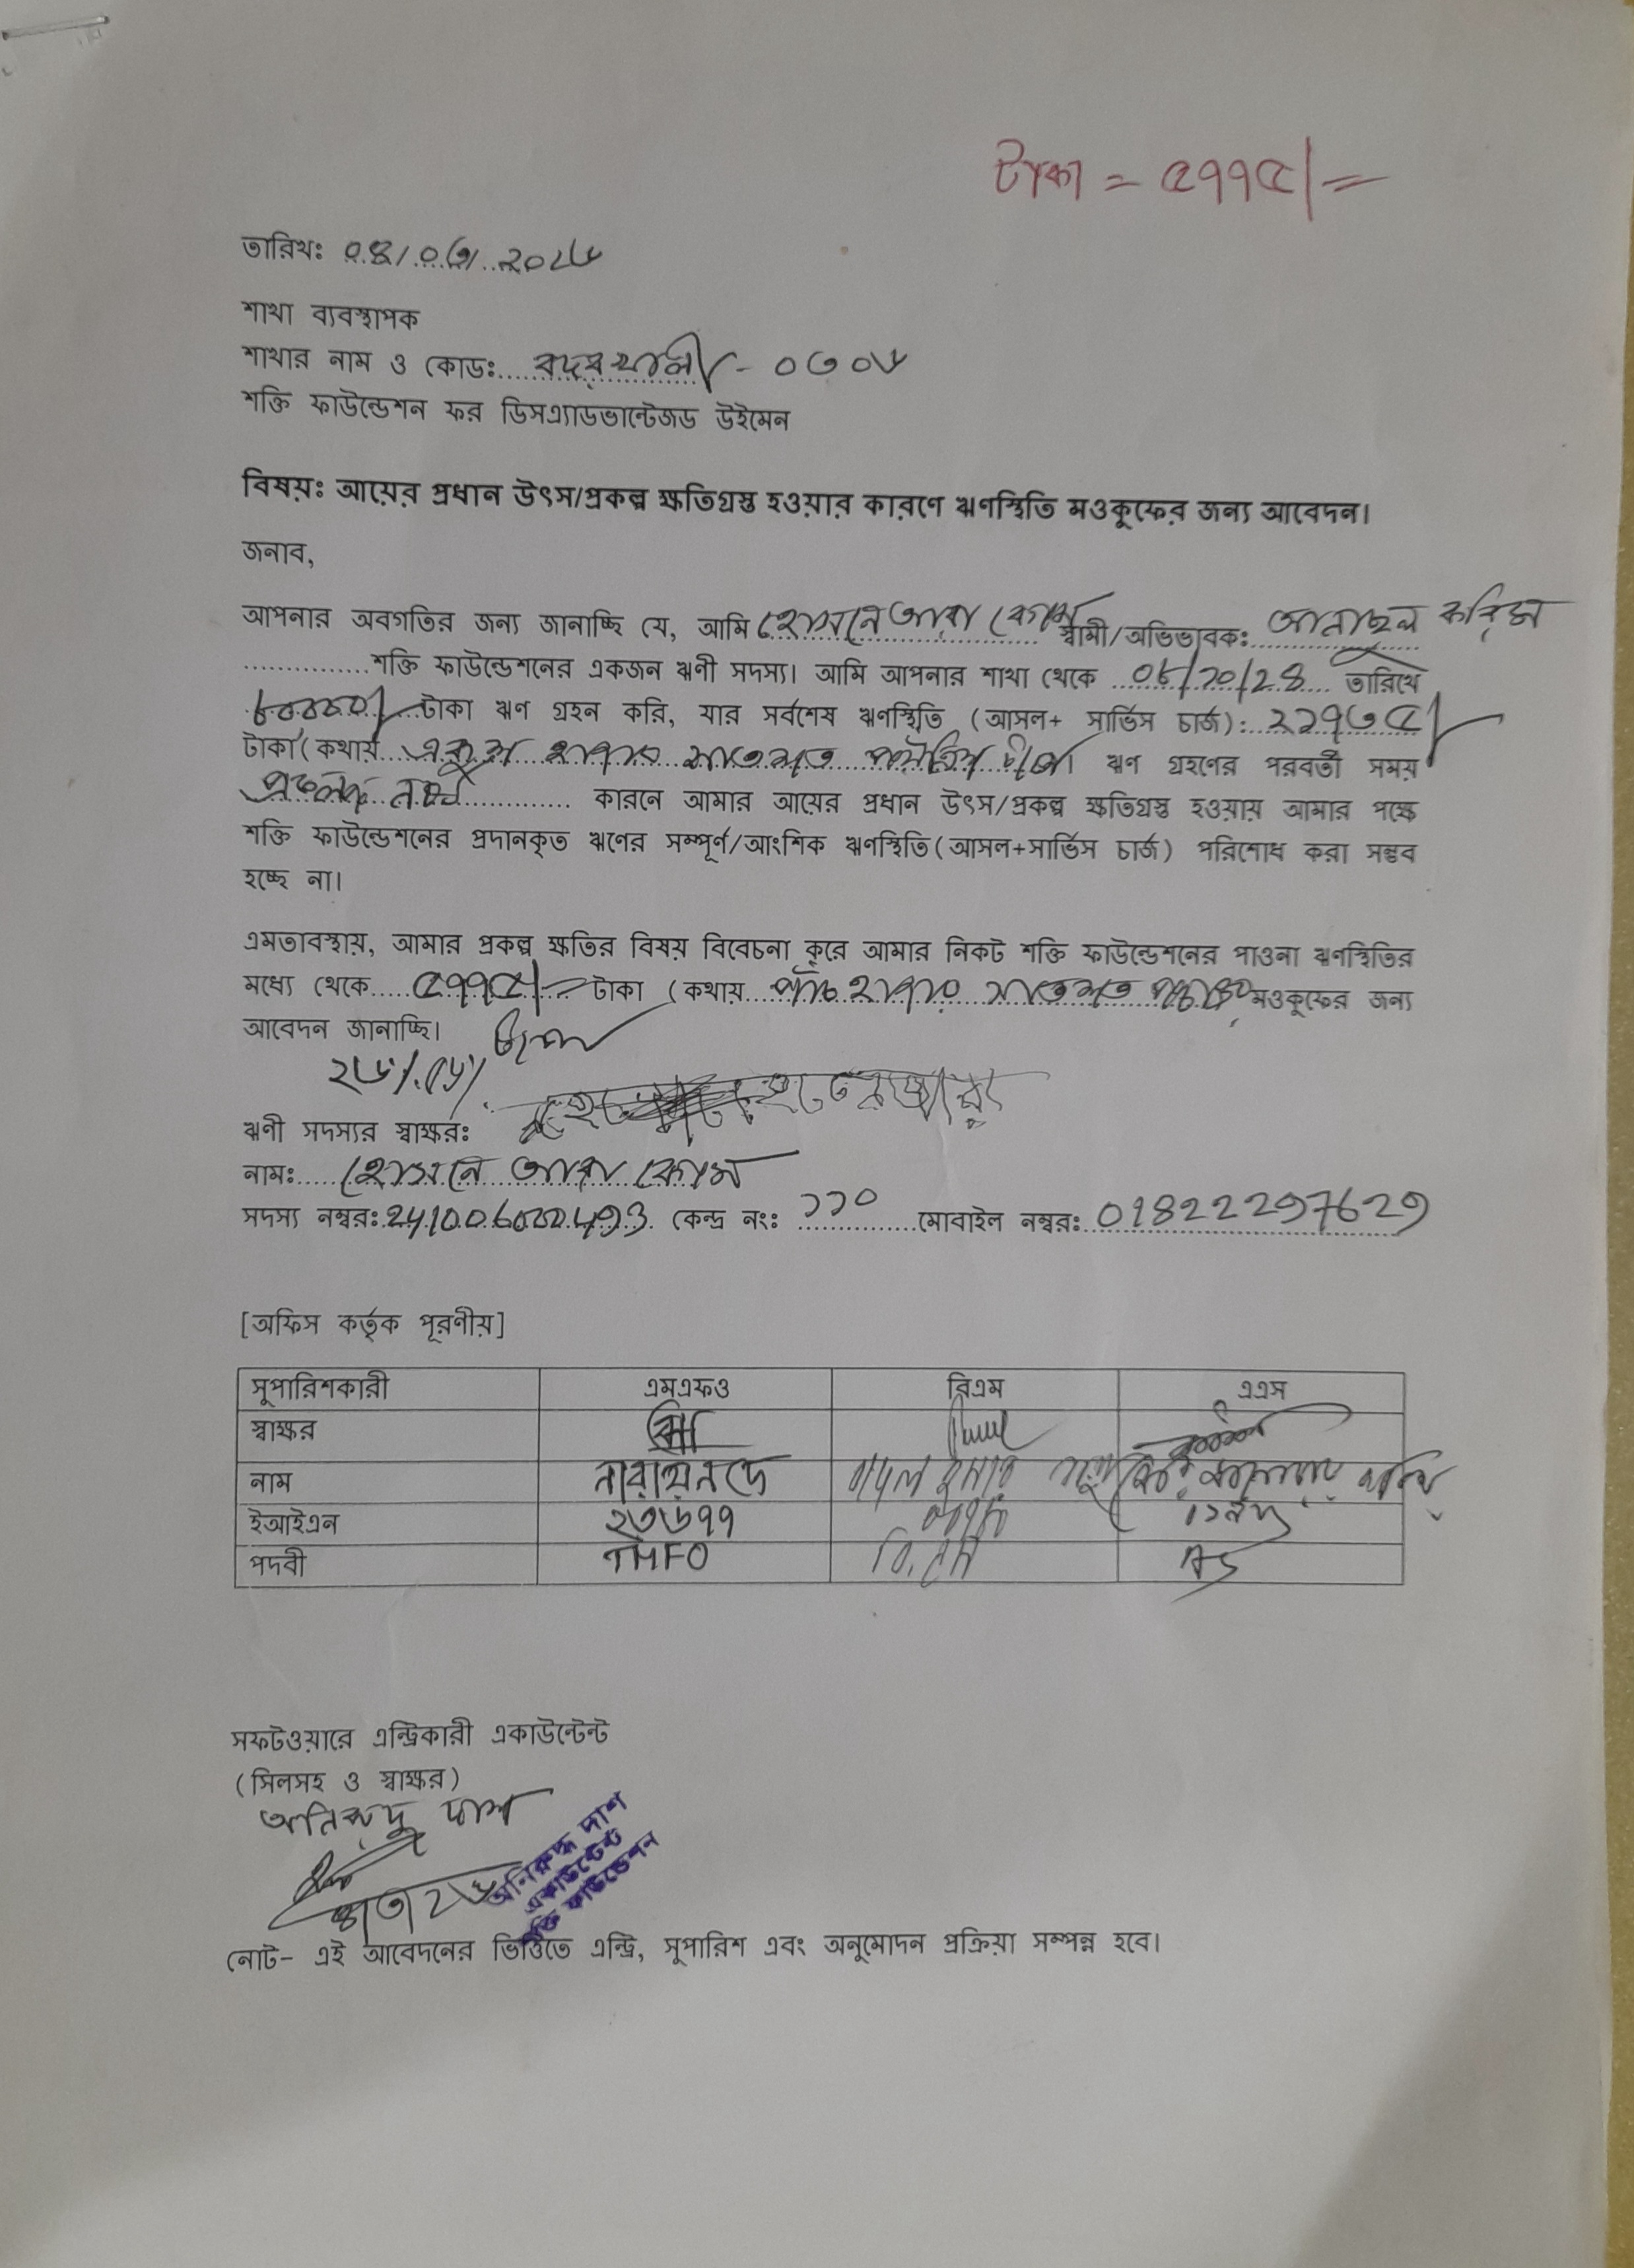 টাকা = ৫৭৭৫/=
তারিখঃ ০৪/০৩/২০২৬
শাখা ব্যবস্থাপক
শাখার নাম ও কোডঃ বদরখালী - ০৩০৬
শক্তি ফাউন্ডেশন ফর ডিসএ্যাডভান্টেজড উইমেন
বিষয়ঃ আয়ের প্রধান উৎস/প্রকল্প ক্ষতিগ্রস্ত হওয়ার কারণে ঋণস্থিতি মওকুফের জন্য আবেদন।
জনাব,
আপনার অবগতির জন্য জানাচ্ছি যে, আমি হোসনে আরা বেগম স্বামী/অভিভাবক: করিম
শক্তি ফাউন্ডেশনের একজন ঋণী সদস্য। আমি আপনার শাখা থেকে ০৮/১০/২৪ তারিখে
৮০০০০/ টাকা ঋণ গ্রহন করি, যার সর্বশেষ ঋণস্থিতি (আসল+ সার্ভিস চার্জ): ২১৭৩৫/
টাকা (কথায় একুশ হাজার সাতশত পয়ত্রিশ টাকা। ঋণ গ্রহণের পরবর্তী সময়
প্রকল্প নষ্ট কারনে আমার আয়ের প্রধান উৎস/প্রকল্প ক্ষতিগ্রস্ত হওয়ায় আমার পক্ষে
শক্তি ফাউন্ডেশনের প্রদানকৃত ঋণের সম্পূর্ণ/আংশিক ঋণস্থিতি(আসল+সার্ভিস চার্জ) পরিশোধ করা সম্ভব
হচ্ছে না।
এমতাবস্থায়, আমার প্রকল্প ক্ষতির বিষয় বিবেচনা করে আমার নিকট শক্তি ফাউন্ডেশনের পাওনা ঋণস্থিতির
মধ্যে থেকে ৫৭৭৫/= টাকা (কথায় পাঁচ হাজার সাতশত পচাত্তর মওকুফের জন্য
আবেদন জানাচ্ছি। টাকা
ঋণী সদস্যর স্বাক্ষরঃ
নামঃ হোসনে আরা বেগম
সদস্য নম্বরঃ কেন্দ্র নং: ১১০ মোবাইল নম্বরঃ 01822297629
[অফিস কর্তৃক পূরণীয়]
সুপারিশকারী এমএফও বিএম এএস
স্বাক্ষর
নাম নারায়ন দে
ইআইএন ২৩৬৭৭
পদবী TMFO বি.এম AS
সফটওয়ারে এন্ট্রিকারী একাউন্টেন্ট
(সিলসহ ও স্বাক্ষর)
অনিরুদ্ধ দাশ
অনিরুদ্ধ দাশ
একাউন্টেন্ট
শক্তি ফাউন্ডেশন
নোট- এই আবেদনের ভিত্তিতে এন্ট্রি, সুপারিশ এবং অনুমোদন প্রক্রিয়া সম্পন্ন হবে।